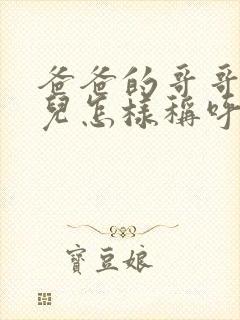 爸爸的哥哥
兒怎樣稱呼
寶豆娘